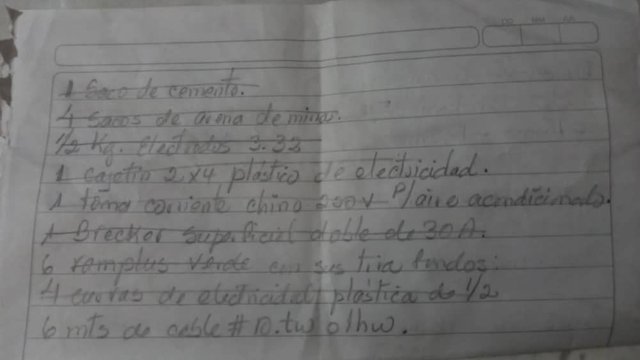 1 Saco de cemento.
4 sacos de arena de mina.
1/2 Kg. Electrodos 3.32
1 cajetin 2x4 plástico de electricidad.
1 toma corriente chino 200V P/aire acondicionado.
1 Brecker superficial doble de 30A.
6 ramplus verde con sus tira fondos.
4 curvas de electricidad plástica de 1/2
6 mts de cable #10.tw o thw.